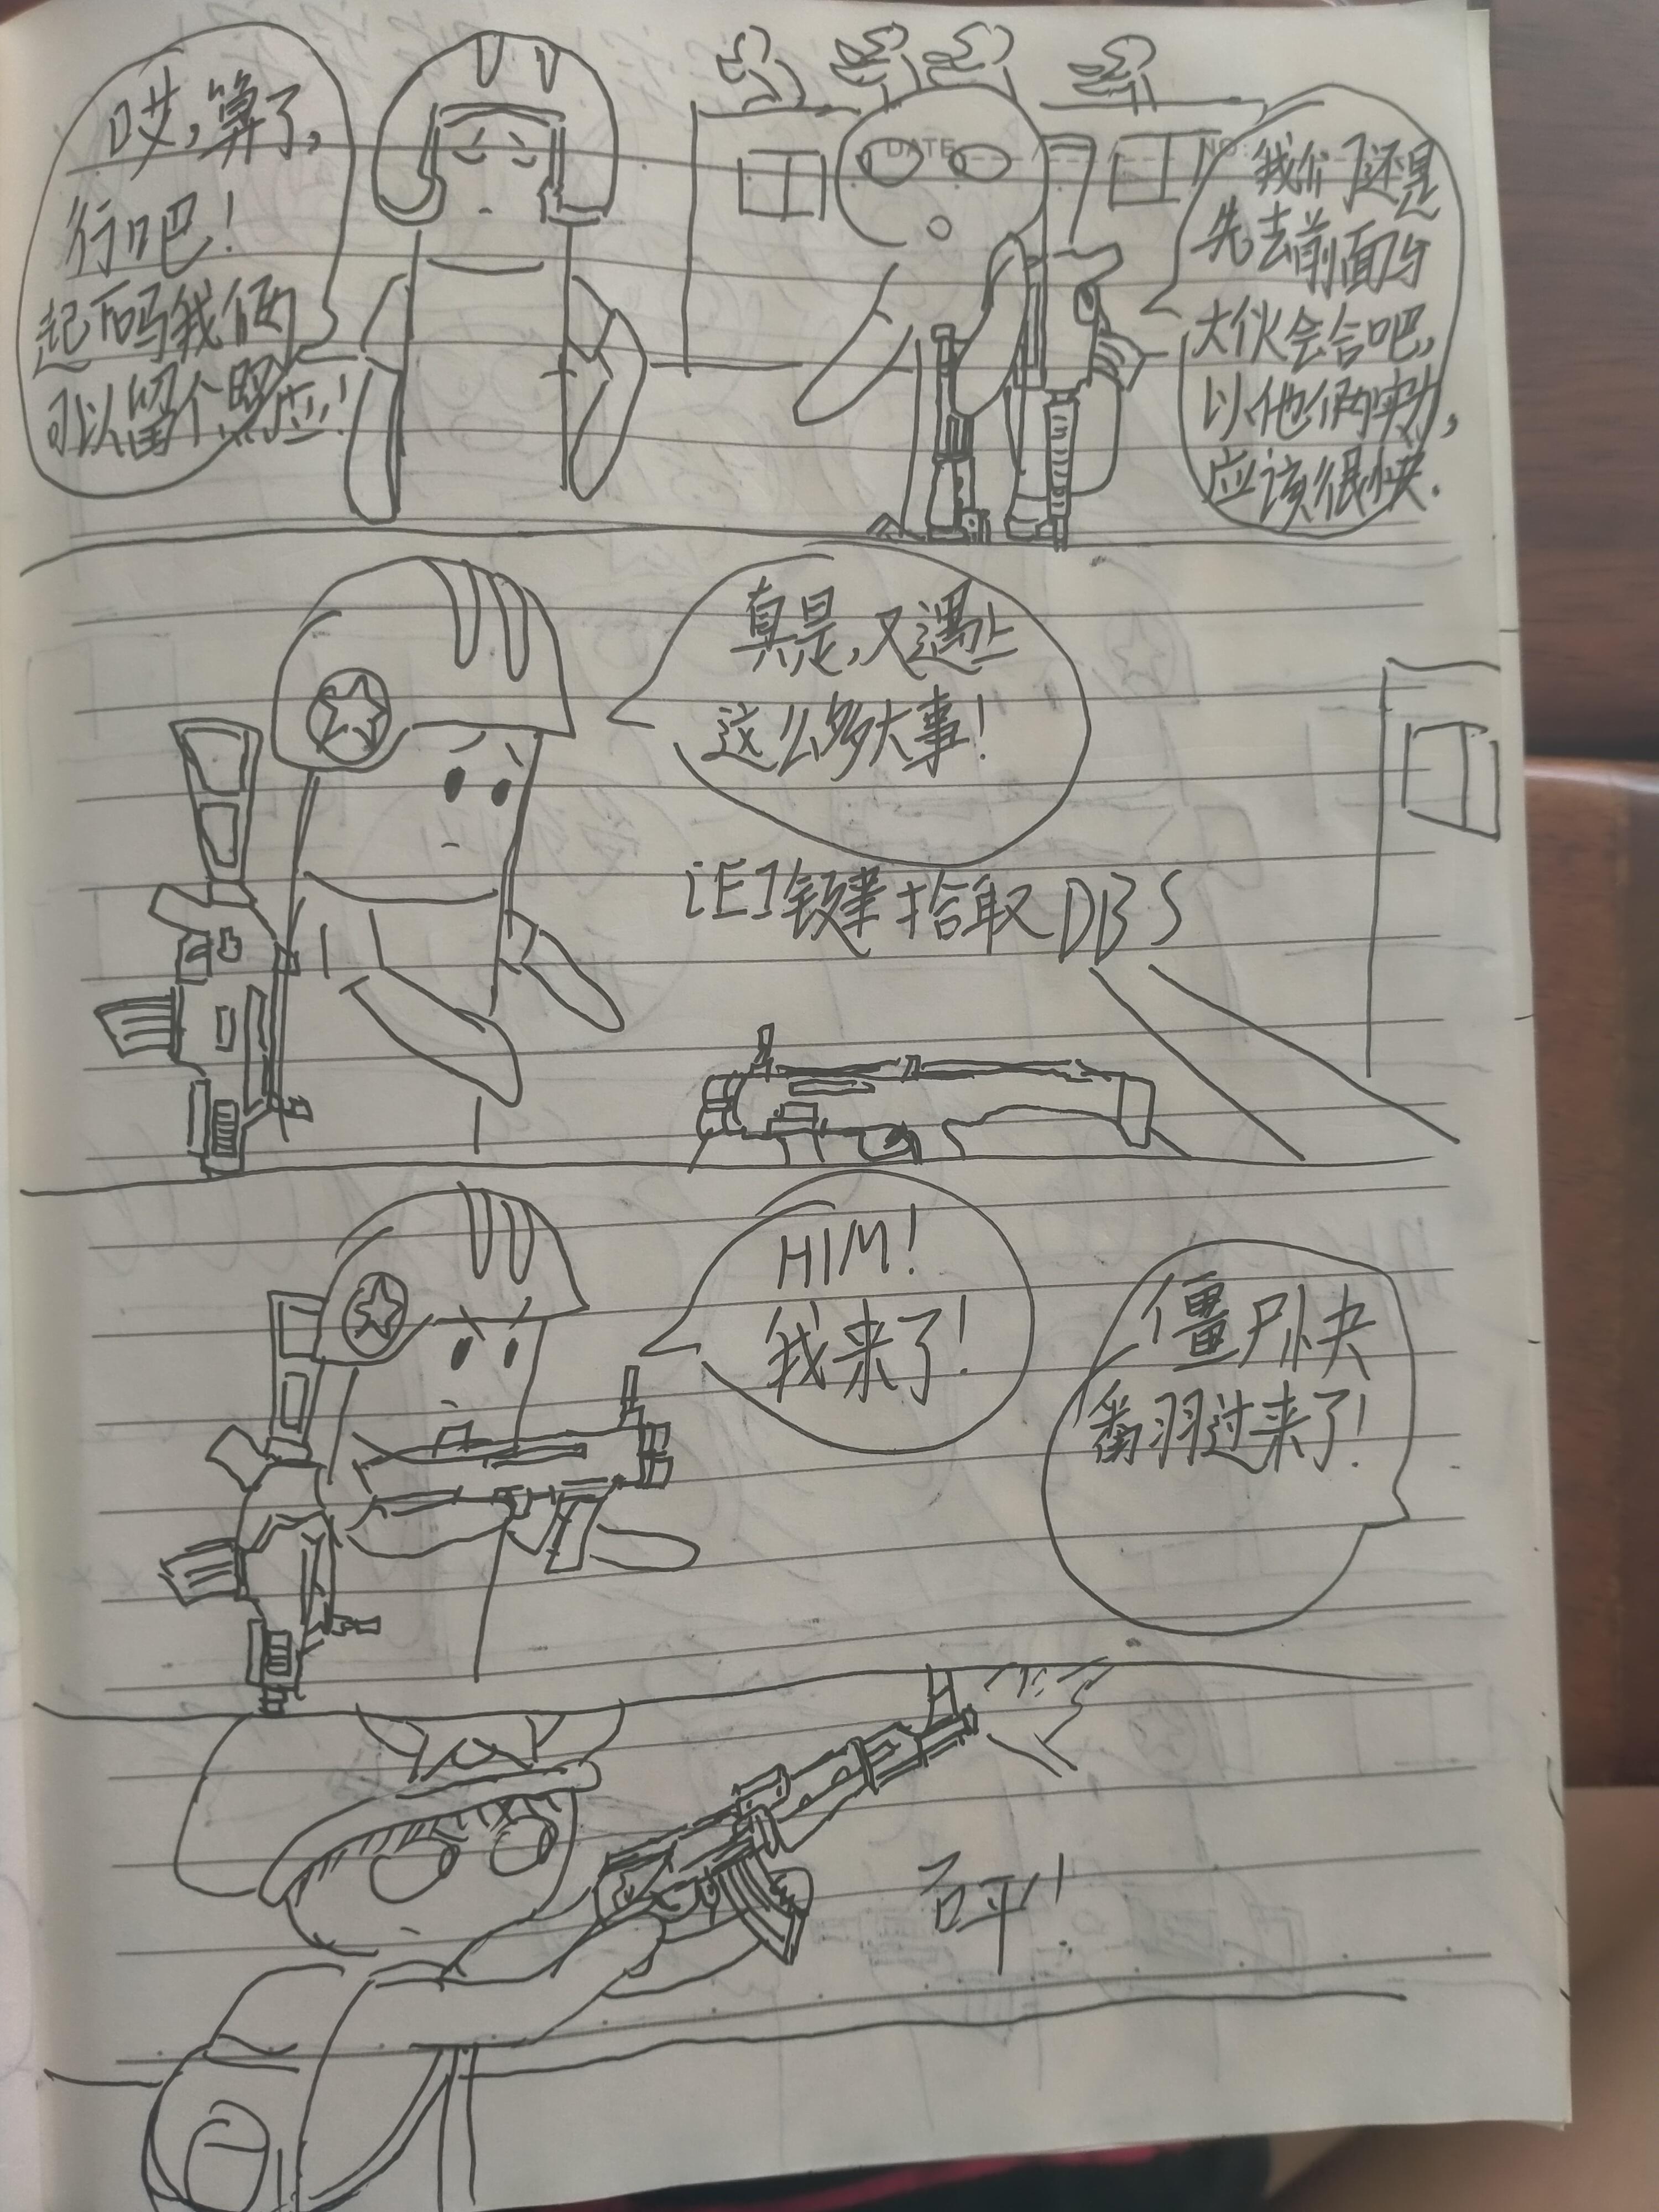 哎,算了,
行吧!
起码我俩
可以留个照应!
DATE
NO.
我们还是
先去前面与
大伙会合吧,
以他俩实力,
应该很快.
真是,又遇上
这么多大事!
[E]键拾取DBS
HIM!
我来了!
僵尸快
翻过来了!
砰!